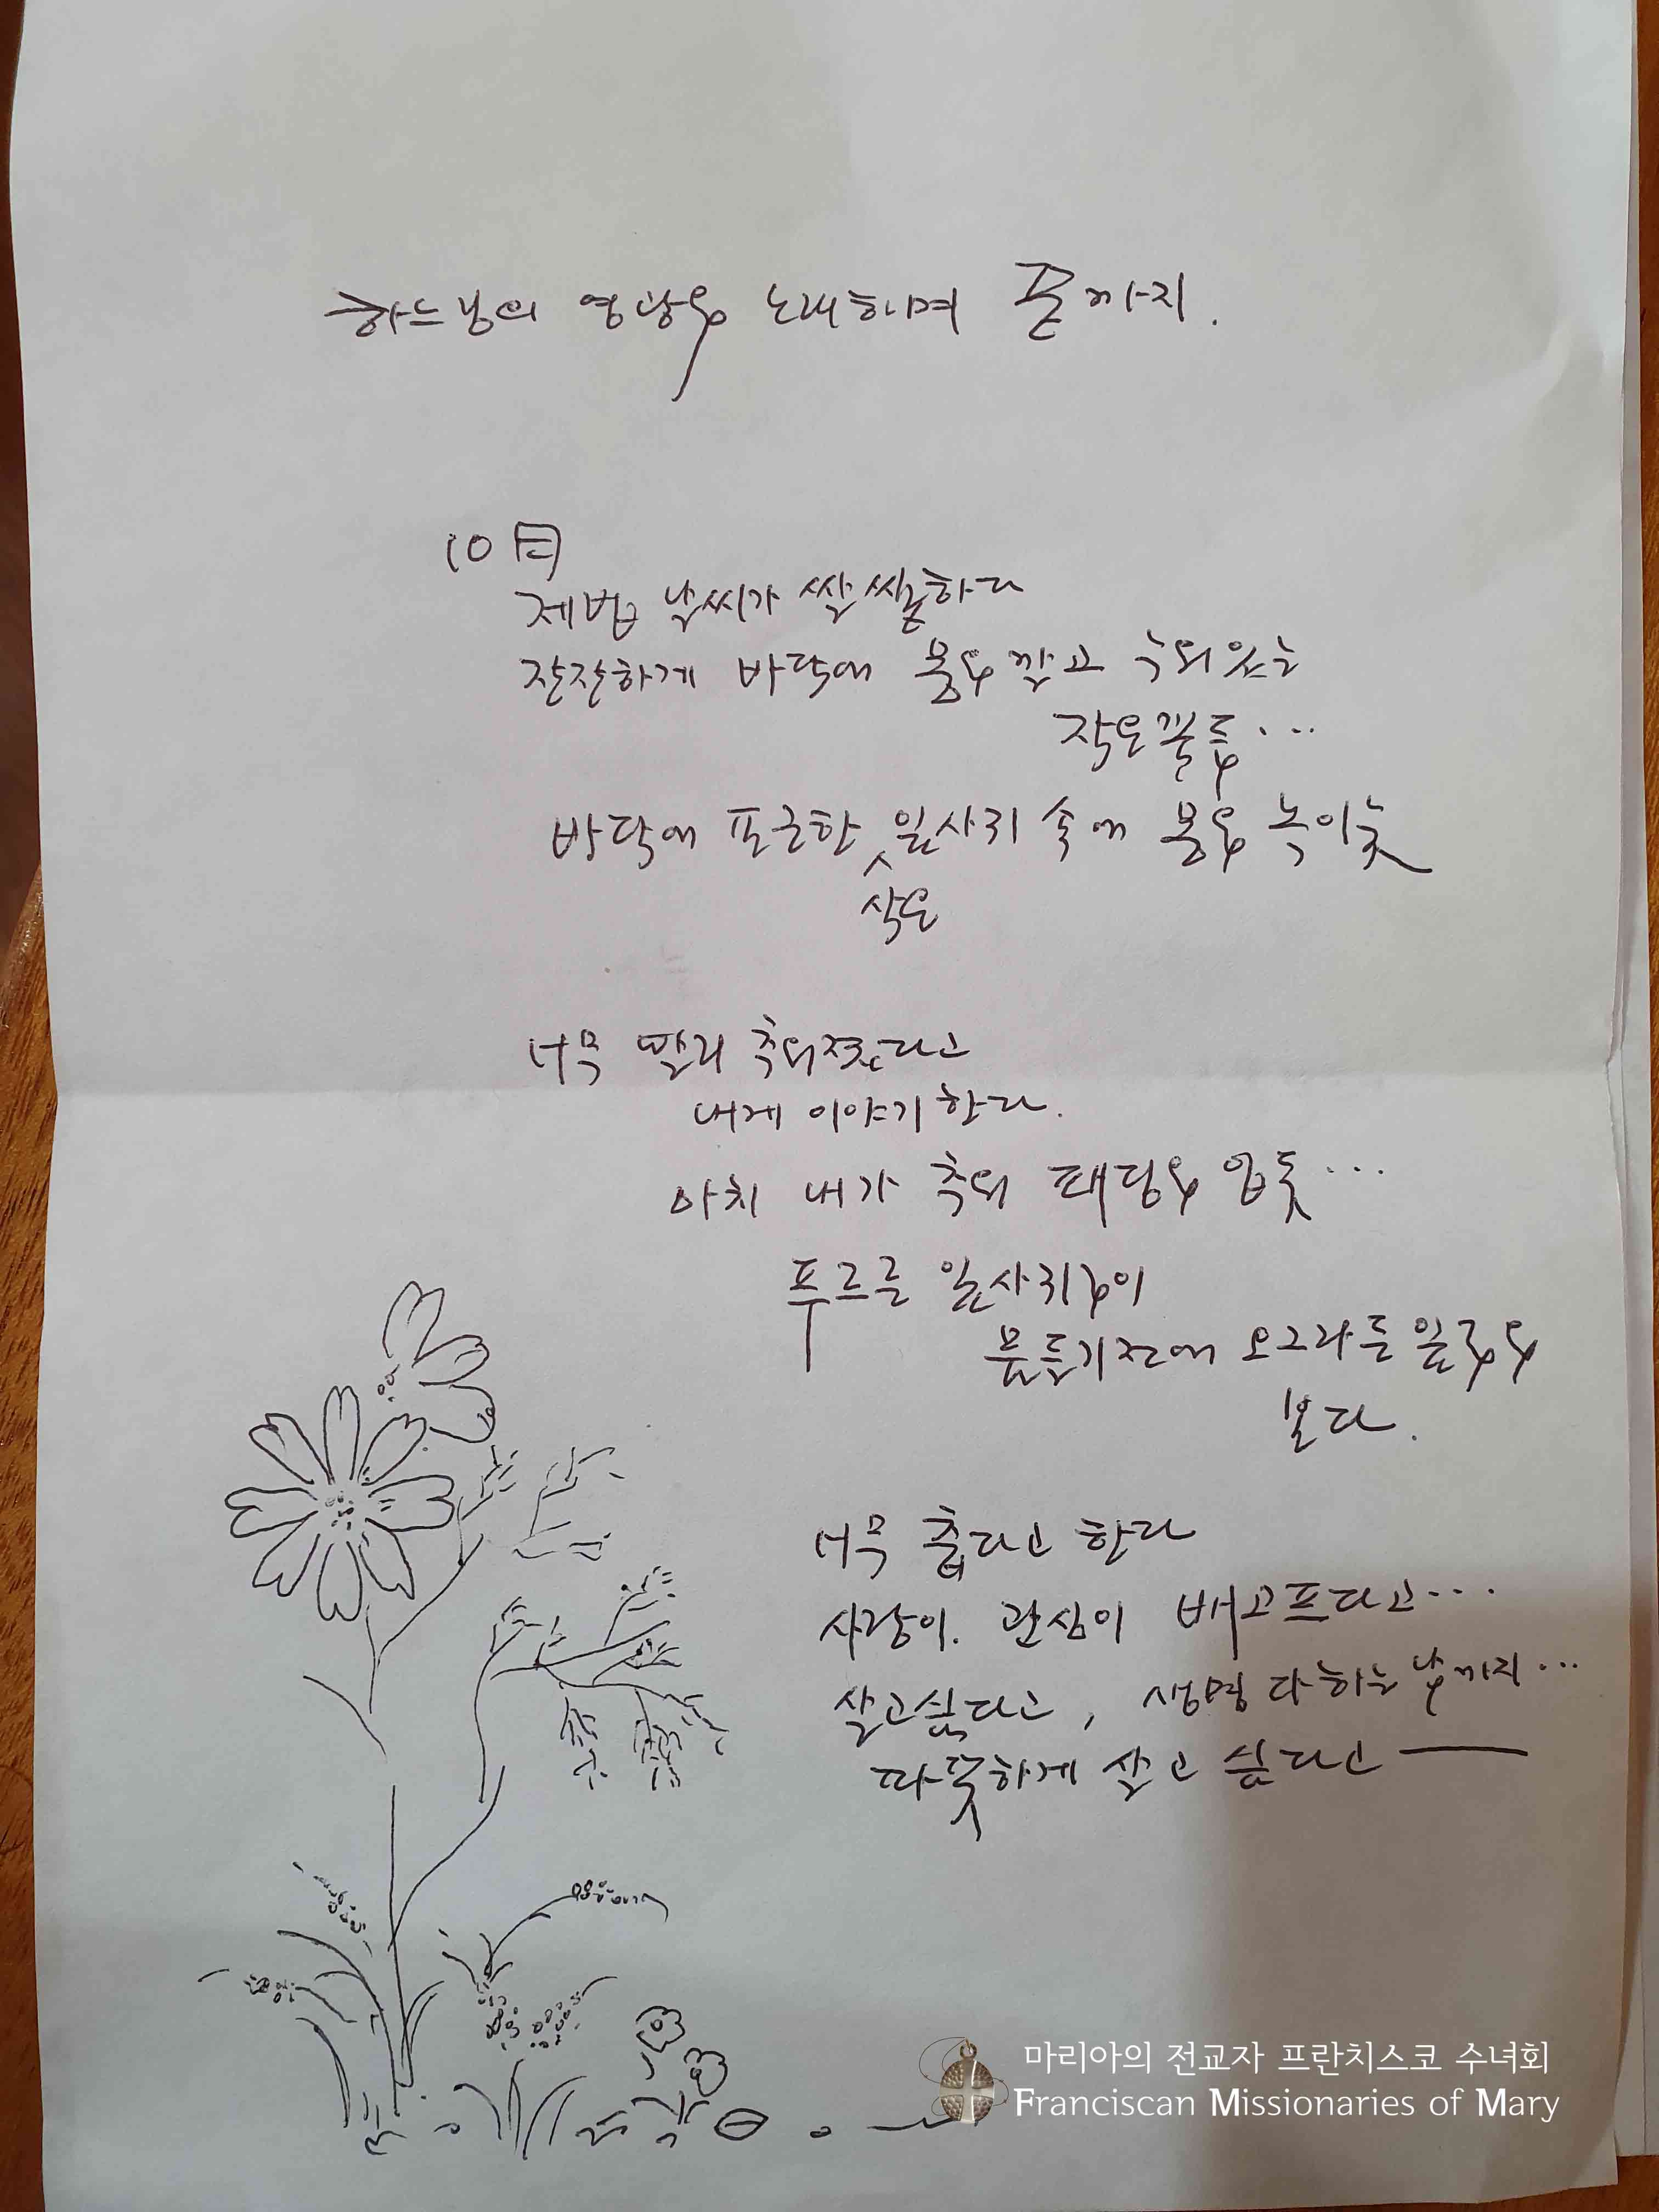 하느님의 영광을 노래하며 끝까지.
10月
제법 날씨가 쌀쌀하다
잔잔하게 바닥에 몸을 깔고 누워있는
작은꽃들...
바닥에 포근한 잎사귀 속에 몸을 녹이듯
작은
너무 빨리 추워졌다고
내게 이야기 한다.
마치 내가 추워 패딩을 입듯...
푸르른 잎사귀들이
물들기전에 오그라든 잎들을
본다.
너무 춥다고 한다
사랑이. 관심이 배고프다고...
살고싶다고, 생명 다하는 날까지...
따뜻하게 살고 싶다고 —
마리아의 전교자 프란치스코 수녀회
Franciscan Missionaries of Mary